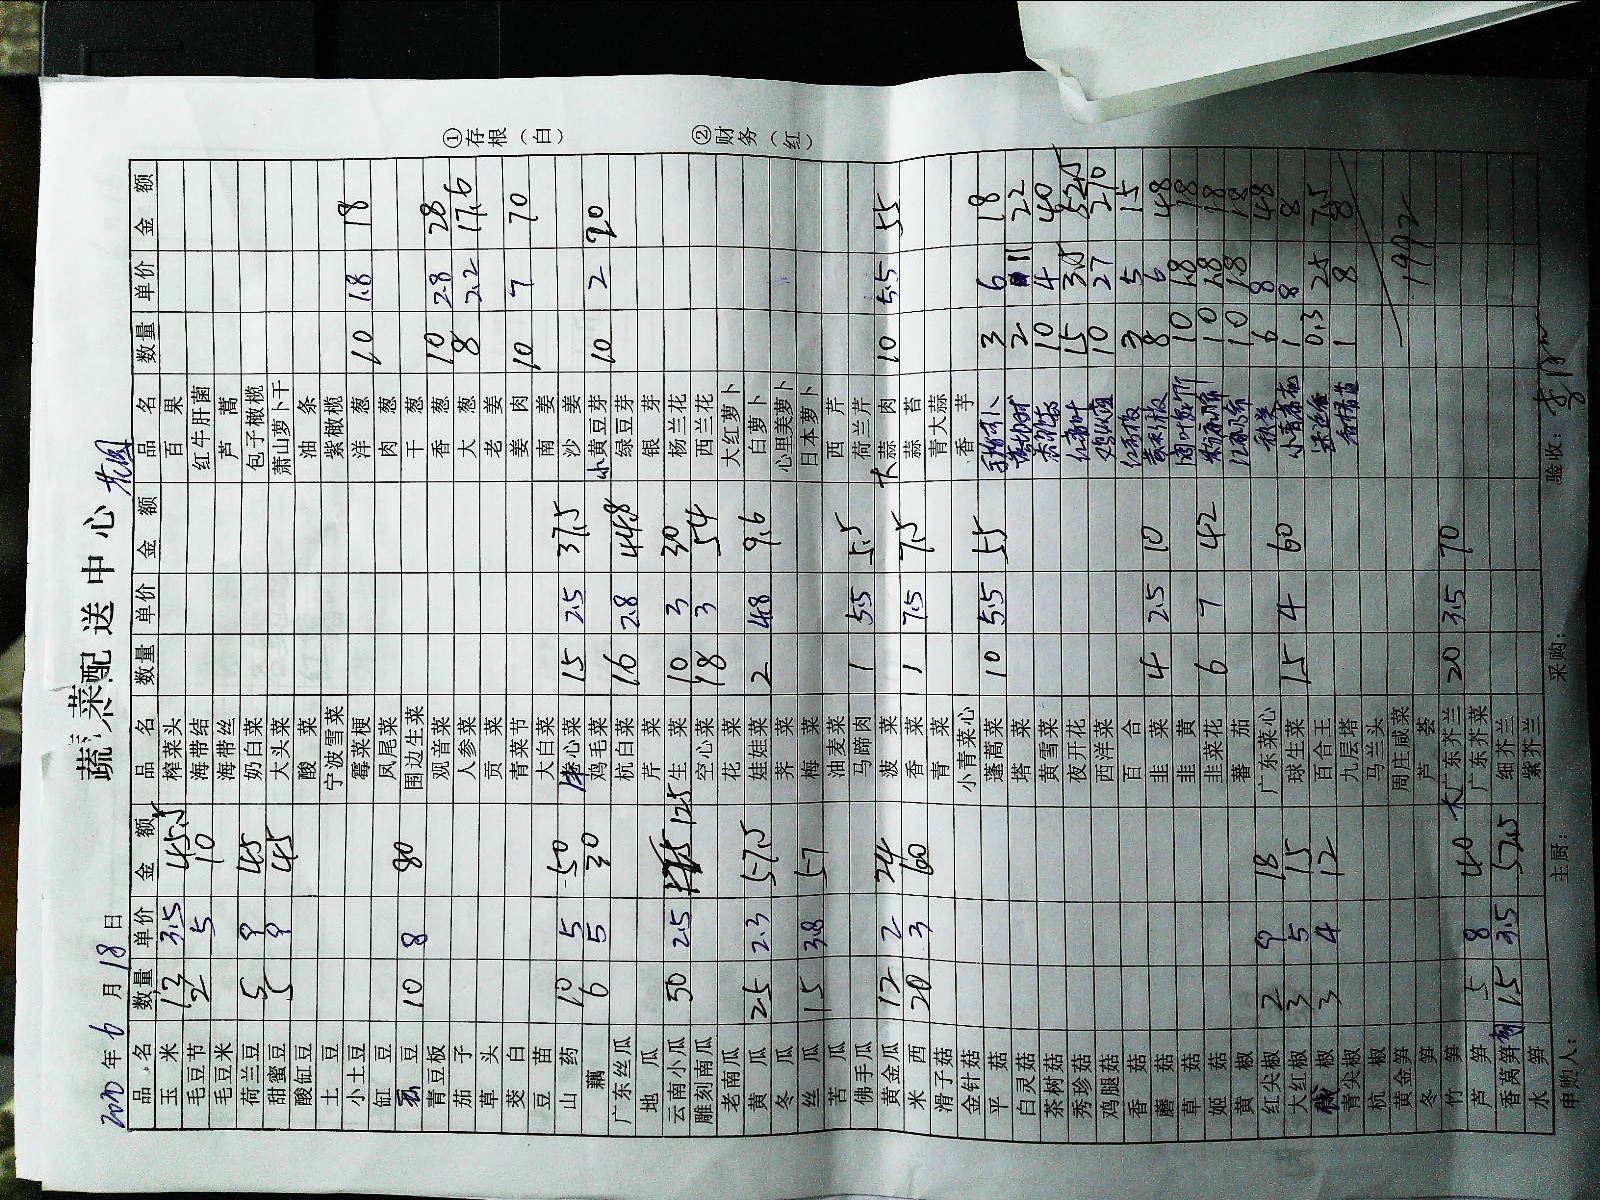 蔬菜配送中心
年 6 月 18 日
品名 数量 单价 金额 品名 数量 单价 金额 品名 数量 单价 金额
玉米 13 3.5 45.5 榨菜头 百果
毛豆节 2 5 10 海带结 红牛肝菌
毛豆米 海带丝 芦蒿
荷兰豆 5 9 45 奶白菜 包子橄榄
甜蜜豆 5 9 45 大头菜 萧山萝卜干
酸缸豆 酸菜 油条
土豆 宁波雪菜 紫橄榄
小土豆 霉菜梗 洋葱 10 1.8 18
缸豆 凤尾菜 肉葱
豆 10 8 80 围边生菜 干葱
青豆板 观音菜 香葱 10 2.8 28
茄子 人参菜 大葱 8 2.2 17.6
草头 贡菜 老姜
茭白 青菜节 姜肉 10 7 70
豆苗 大白菜 南姜
山药 10 5 50 心菜 15 2.5 37.5 沙姜
藕 6 5 30 鸡毛菜 小黄豆芽 10 2 20
广东丝瓜 杭白菜 16 2.8 44.8 绿豆芽
地瓜 芹菜 银芽
云南小瓜 50 2.5 125 生菜 10 3 30 杨兰花
雕刻南瓜 空心菜 18 3 54 西兰花
老南瓜 花菜 大红萝卜
黄瓜 25 2.3 57.5 娃娃菜 2 4.8 9.6 白萝卜
冬瓜 荠菜 心里美萝卜
丝瓜 15 3.8 57 梅菜 日本萝卜
苦瓜 油麦菜 西芹
佛手瓜 马蹄肉 1 5.5 5.5 荷兰芹
黄金瓜 12 2 24 菠菜 大蒜肉 10 5.5 55
米西 20 3 60 香菜 1 7.5 7.5 蒜苔
滑子菇 青菜 青大蒜
金针菇 小青菜心 香芋
平菇 蓬蒿菜 10 5.5 55 3 6 18
白灵菇 塔菜 2 11 22
茶树菇 黄雪菜 10 4 40
秀珍菇 夜开花 15 3.5 52.5
鸡腿菇 西洋菜 10 27 270
香菇 百合 3 5 15
蘑菇 韭菜 4 2.5 10 8 6 48
草菇 韭黄 10 1.8 18
姬菇 韭菜花 6 7 42 10 1.8 18
黄椒 蕃茄 10 1.8 18
红尖椒 2 9 18 广东菜心 6 8 48
大红椒 3 5 15 球生菜 15 4 60 1 8 8
椒 3 4 12 百合王 0.3 25 7.5
青尖椒 九层塔 1 8 8
杭椒 马兰头
黄金笋 周庄咸菜 1992
冬笋 芦荟
竹笋 大广东芥兰 20 3.5 70
芦笋 5 8 40 广东芥菜
香莴笋 15 3.5 52.5 细芥兰
水笋 紫芥兰
申购人： 主厨： 采购： 验收：
①存根（白）
②财务（红）